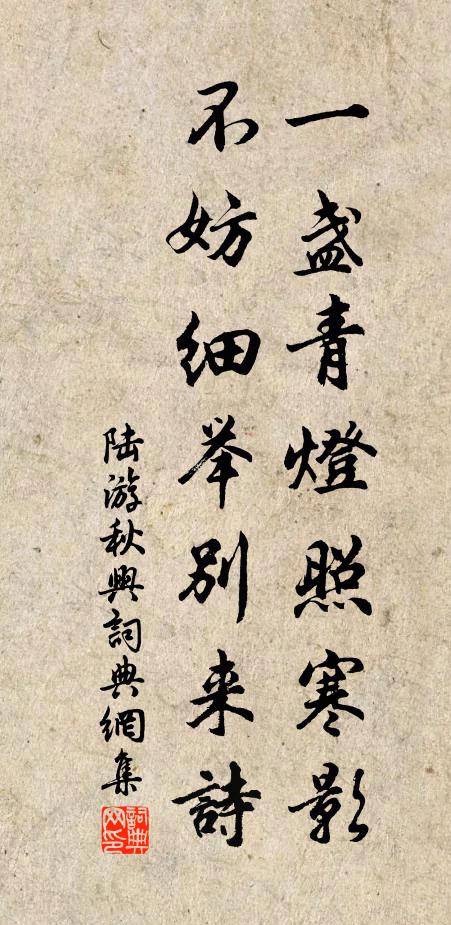 一盞青燈照寒影
不妨细举别来詩
陆游秋興詞典網集
詞典网印